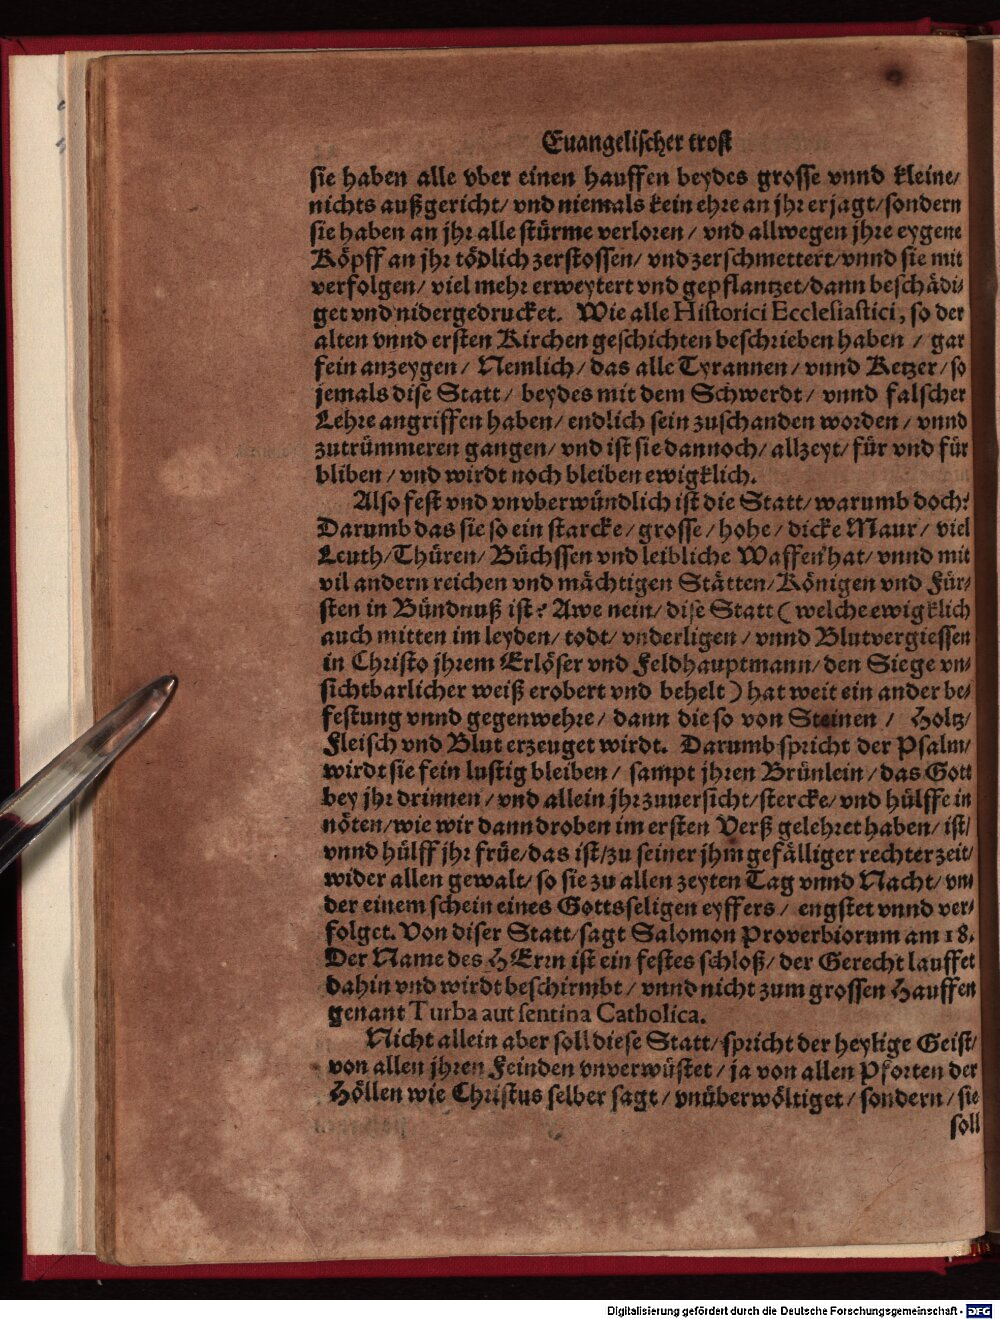 Euangelischer trost
sie haben alle vber einen hauffen beydes grosse vnnd kleine/
nichts außgericht/ vnd niemals kein ehre an jhr erjagt/ sondern
sie haben an jhr alle stürme verloren / vnd allwegen jhre eygene
Köpff an jhr tödlich zerstossen/ vnd zerschmettert/ vnnd sie mit
verfolgen/ viel mehr erweytert vnd gepflantzet/ dann beschädi⸗
get vnd nidergedrucket. Wie alle Historici Ecclesiastici, so der
alten vnnd ersten Kirchen geschichten beschrieben haben / gar
fein anzeygen/ Nemlich/ das alle Tyrannen/ vnnd Ketzer/ so
jemals dise Statt/ beydes mit dem Schwerdt/ vnnd falscher
Lehre angriffen haben/ endlich sein zuschanden worden/ vnnd
zutrümmeren gangen/ vnd ist sie dannoch/ allzeyt/ für vnd für
bliben / vnd wirdt noch bleiben ewigklich.
Also fest vnd vnvberwündlich ist die Statt/ warumb doch?
Darumb das sie so ein starcke/ grosse/ hohe/ dicke Maur/ viel
Leuth/ Thüren/ Büchssen vnd leibliche Waffen hat/ vnnd mit
vil andern reichen vnd mächtigen Stätten/ Königen vnd Für⸗
sten in Bündnuß ist? Awe nein/ dise Statt ( welche ewigklich
auch mitten im leyden/ todt/ vnderligen / vnnd Blutvergiessen
in Christo jhrem Erlöser vnd Feldhauptmann/ den Siege vn⸗
sichtbarlicher weiß erobert vnd behelt ) hat weit ein ander be⸗
festung vnnd gegenwehre/ dann die so von Steinen / Holtz/
Fleisch vnd Blut erzeuget wirdt. Darumb spricht der Psalm/
wirdt sie fein lustig bleiben/ sampt jhren Brünlein/ das Gott
bey jhr drinnen/ vnd allein jhr zuuersicht/ stercke/ vnd hülffe in
nöten/ wie wir dann droben im ersten Verß gelehret haben/ ist/
vnnd hülff jhr früe/ das ist/ zu seiner jhm gefälliger rechter zeit/
wider allen gewalt/ so sie zu allen zeyten Tag vnnd Nacht/ vn⸗
der einem schein eines Gottsseligen eyffers/ engstet vnnd ver⸗
folget. Von diser Statt/ sagt Salomon Proverbiorum am 18.
Der Name des HErrn ist ein festes schloß/ der Gerecht lauffet
dahin vnd wirdt beschirmbt/ vnnd nicht zum grossen Hauffen
genant Turba aut sentina Catholica.
Nicht allein aber soll diese Statt/ spricht der heylige Geist/
von allen jhren Feinden vnverwüstet/ ja von allen Pforten der
Höllen wie Christus selber sagt/ vnüberwöltiget/ sondern/ sie
soll
Digitalisierung gefördert durch die Deutsche Forschungsgemeinschaft - DFG